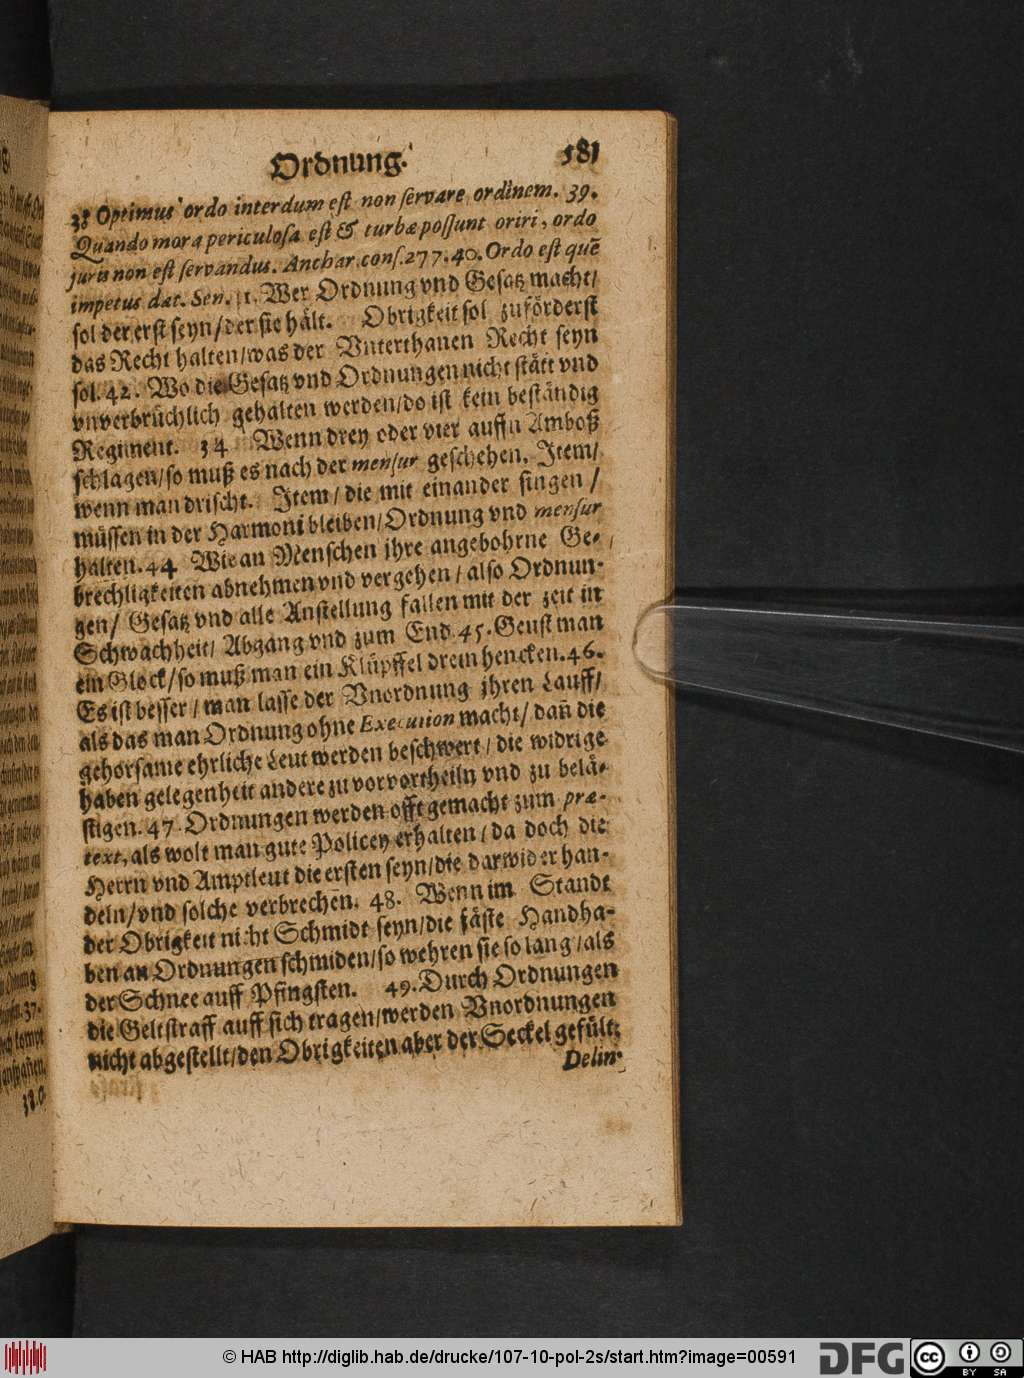 Ordnung. 581
38 Optimus ordo interdum est non servare ordinem. 39.
Quando mora periculosa est & turbæ possunt oriri, ordo
juris non est servandus. Anchar. cons. 277. 40. Ordo est quē
impetus dat. Sen. 41. Wer Ordnung vnd Gesatz macht/
sol der erst seyn/der sie hält. Obrigkeit sol zuförderst
das Recht halten/was der Vnterthanen Recht seyn
sol. 42. Wo die Gesatz vnd Ordnungen nicht stätt vnd
vnverbrüchlich gehalten werden/do ist kein beständig
Regiment. 34 Wenn drey oder vier auffn Amboß
schlagen/so muß es nach der mensur geschehen. Item/
wenn man drischt. Item/die mit einander singen/
müssen in der Harmoni bleiben/Ordnung vnd mensur
halten. 44 Wie an Menschen ihre angebohrne Ge-
brechligkeiten abnehmen vnd vergehen/also Ordnun-
gen/ Gesatz vnd alle Anstellung fallen mit der zeit in
Schwachheit/ Abgang vnd zum End. 45. Geust man
ein Glock/so muß man ein Klüpffel drein hencken. 46.
Es ist besser/man lasse der Vnordnung ihren Lauff/
als das man Ordnung ohne Execution macht/ dañ die
gehorsame ehrliche Leut werden beschwert/die widrige
haben gelegenheit andere zu vorvortheiln vnd zu belä-
stigen. 47. Ordnungen werden offt gemacht zum præ-
text, als wolt man gute Policey erhalten/da doch die
Herrn vnd Amptleut die ersten seyn/die darwider han-
deln/vnd solche verbrechen. 48. Wenn im Standt
der Obrigkeit nicht Schmidt seyn/die fäste Handha-
ben an Ordnungen schmiden/so wehren sie so lang/als
der Schnee auff Pfingsten. 49. Durch Ordnungen
die Geltstraff auff sich tragen/werden Vnordnungen
nicht abgestellt/den Obrigkeiten aber der Seckel gefült;
Delin-
© HAB http://diglib.hab.de/drucke/107-10-pol-2s/start.htm?image=00591
DFG
cc BY SA